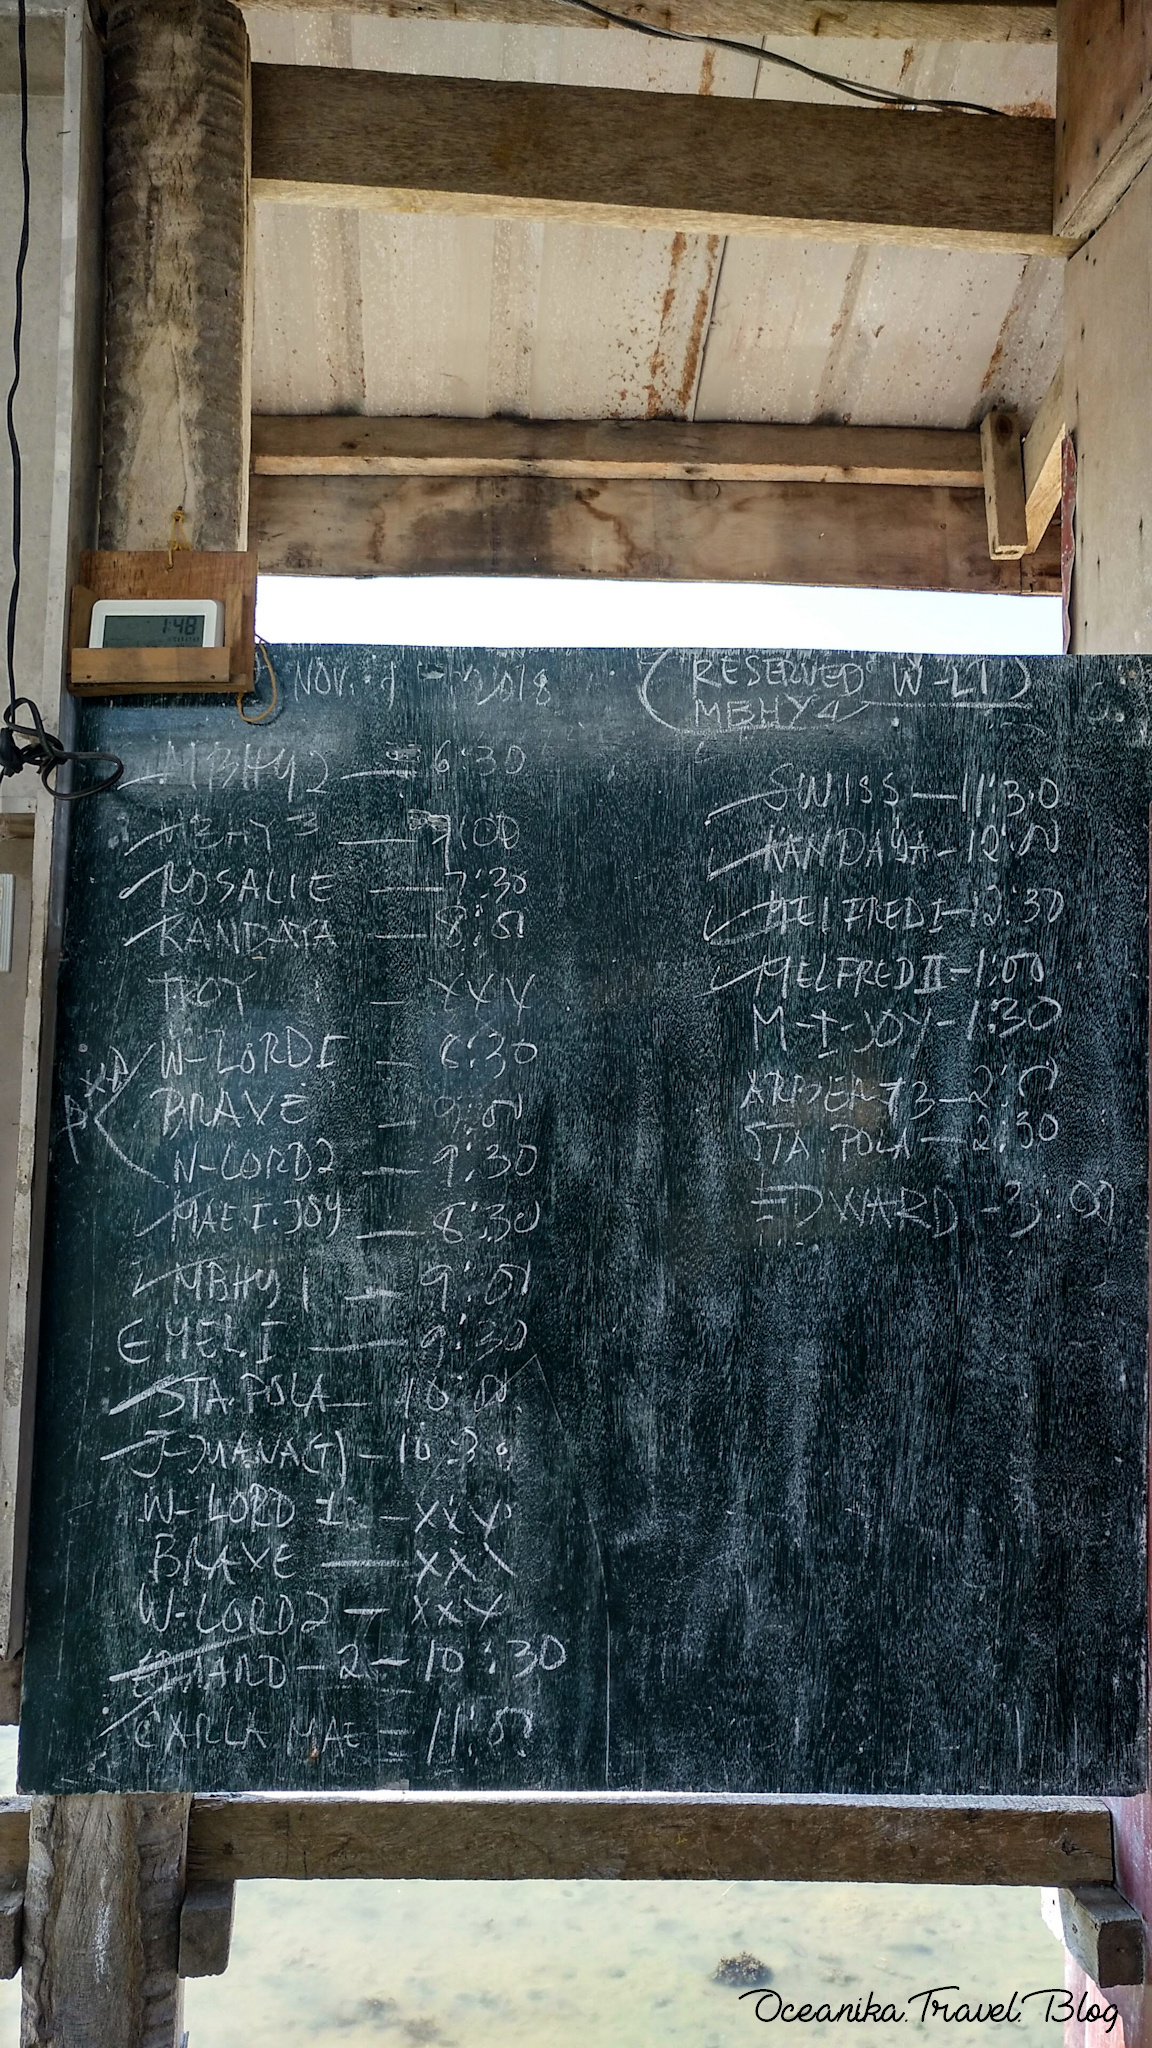 1:48
NOV. 2018
RESERVED W-L1
MBHY4
MBHY2 — 6:30
MBHY 3 — 7:00
ROSALIE — 7:30
KANDAYA — 8:00
TROY — XXX
W-LORD I — 8:30
BRAVE — 9:00
W-LORD2 — 9:30
MAE I. JOY — 8:30
MBHY 1 — 9:00
MEL I — 9:30
STA. POLA — 10:00
J-JUANA(T) — 10:30
W-LORD 1 — XXX
BRAVE — XXX
W-LORD2 — XXX
EDWARD — 2 — 10:30
CARLLA MAE = 11:00
SWISS — 11:30
KANDAYA — 12:00
MELFRED I — 12:30
MELFRED II — 1:00
M-I-JOY — 1:30
— 2:00
STA. POLA — 2:30
EDWARD — 3:00
Oceanika.Travel.Blog